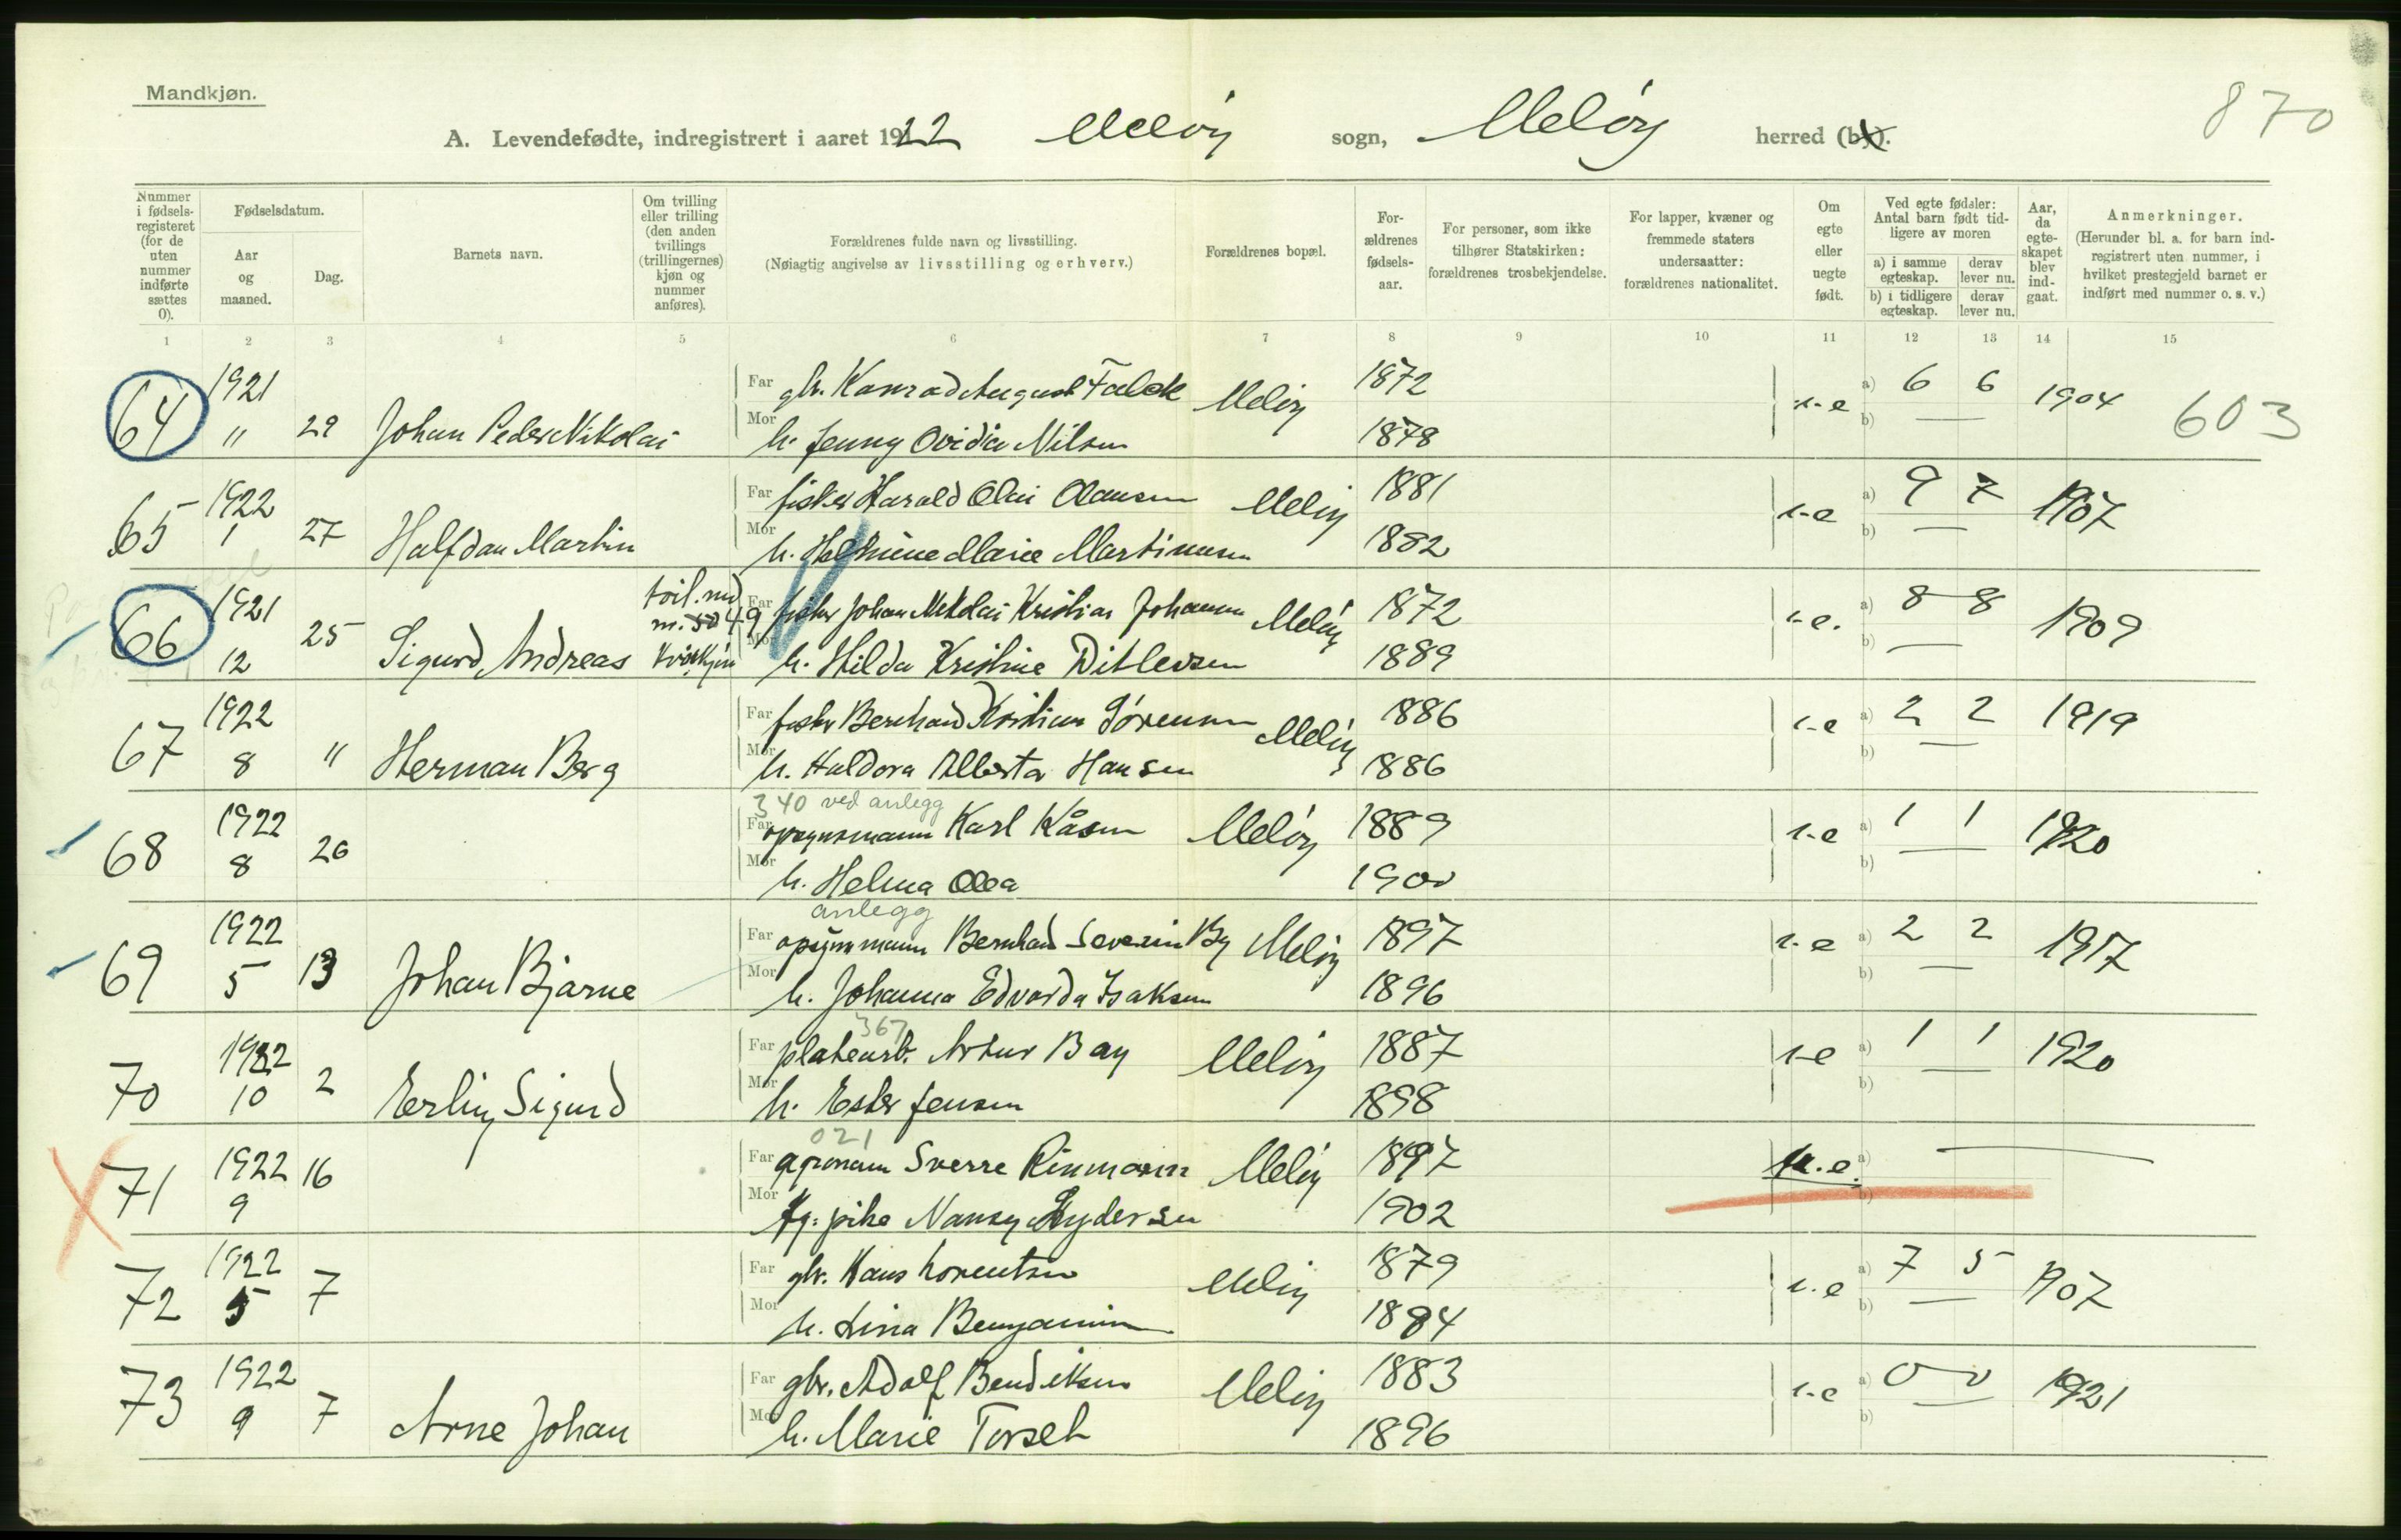 Mandkjøn.
870
A. Levendefødte, indregistrert i aaret 1922 Meløy sogn, Meløy herred (by).
Nummer i fødselsregisteret (for de uten nummer indførte sættes 0).
Fødselsdatum.
Aar og maaned.
Dag.
Barnets navn.
Om tvilling eller trilling (den anden tvillings (trillingernes) kjøn og nummer anføres).
Forældrenes fulde navn og livsstilling.
(Nøiagtig angivelse av livsstilling og erhverv.)
Forældrenes bopæl.
For-ældrenes fødsels-aar.
For personer, som ikke tilhører Statskirken: forældrenes trosbekjendelse.
For lapper, kvæner og fremmede staters undersaatter: forældrenes nationalitet.
Om egte eller uegte født.
Ved egte fødsler: Antal barn født tidligere av moren
a) i samme egteskap.
derav lever nu.
b) i tidligere egteskap.
derav lever nu.
Aar, da egteskapet blev indgaat.
Anmerkninger.
(Herunder bl. a. for barn indregistrert uten nummer, i hvilket prestegjeld barnet er indført med nummer o. s. v.)
1 2 3 4 5 6 7 8 9 10 11 12 13 14 15
64 1921 " 29 Johan Peder Nikolai
Far gbr. Konrad August Falck Meløy 1872 e a) 6 6 1904 603
Mor h. Jenny Ovidia Nilsen 1878 b) —
65 1922 1 27 Halfdan Martin
Far fisker Harald Olai Olausen Meløy 1881 e a) 9 7 1907
Mor h. Marie Martinusen 1882 b) —
66 1921 12 25 Sigurd Andreas tvil. med nr. 49 kvinkjøn
Far fisker Johan Nikolai Kristian Johansen Meløy 1872 e. a) 8 8 1909
Mor h. Hilda Kristine Ditlevsen 1889 b) —
67 1922 8 " Herman Berg
Far fisker Bernhard Kristian Sørensen Meløy 1886 e a) 2 2 1919
Mor h. Haldora Alberta Hansen 1886 b) —
340 ved anlegg
68 1922 8 26
Far opsynsmann Karl Kåsen Meløy 1889 e a) 1 1 1920
Mor h. Helma Olea 1900 b) —
anlegg
69 1922 5 13 Johan Bjarne
Far opsynsmann Bernhard Severin By Meløy 1897 e a) 2 2 1917
Mor h. Johanna Edvarda Isaksen 1896 b) —
367
70 1922 10 2 Erling Sigurd
Far platearb. Artur Bay Meløy 1887 e a) 1 1 1920
Mor h. Ester Jensen 1898 b) —
021
71 1922 9 16
Far agronom Sverre Rinmann Meløy 1897 u.e. a) —
Mor pike Nancy 1902 b)
72 1922 5 7
Far gbr. Hans Lorentsen Meløy 1879 e a) 7 5 1907
Mor h. Lina Benjamin 1884 b) —
73 1922 9 7 Arne Johan
Far gbr. Adolf Bendiksen Meløy 1883 e a) 0 0 1921
Mor h. Marie Torset 1896 b) —